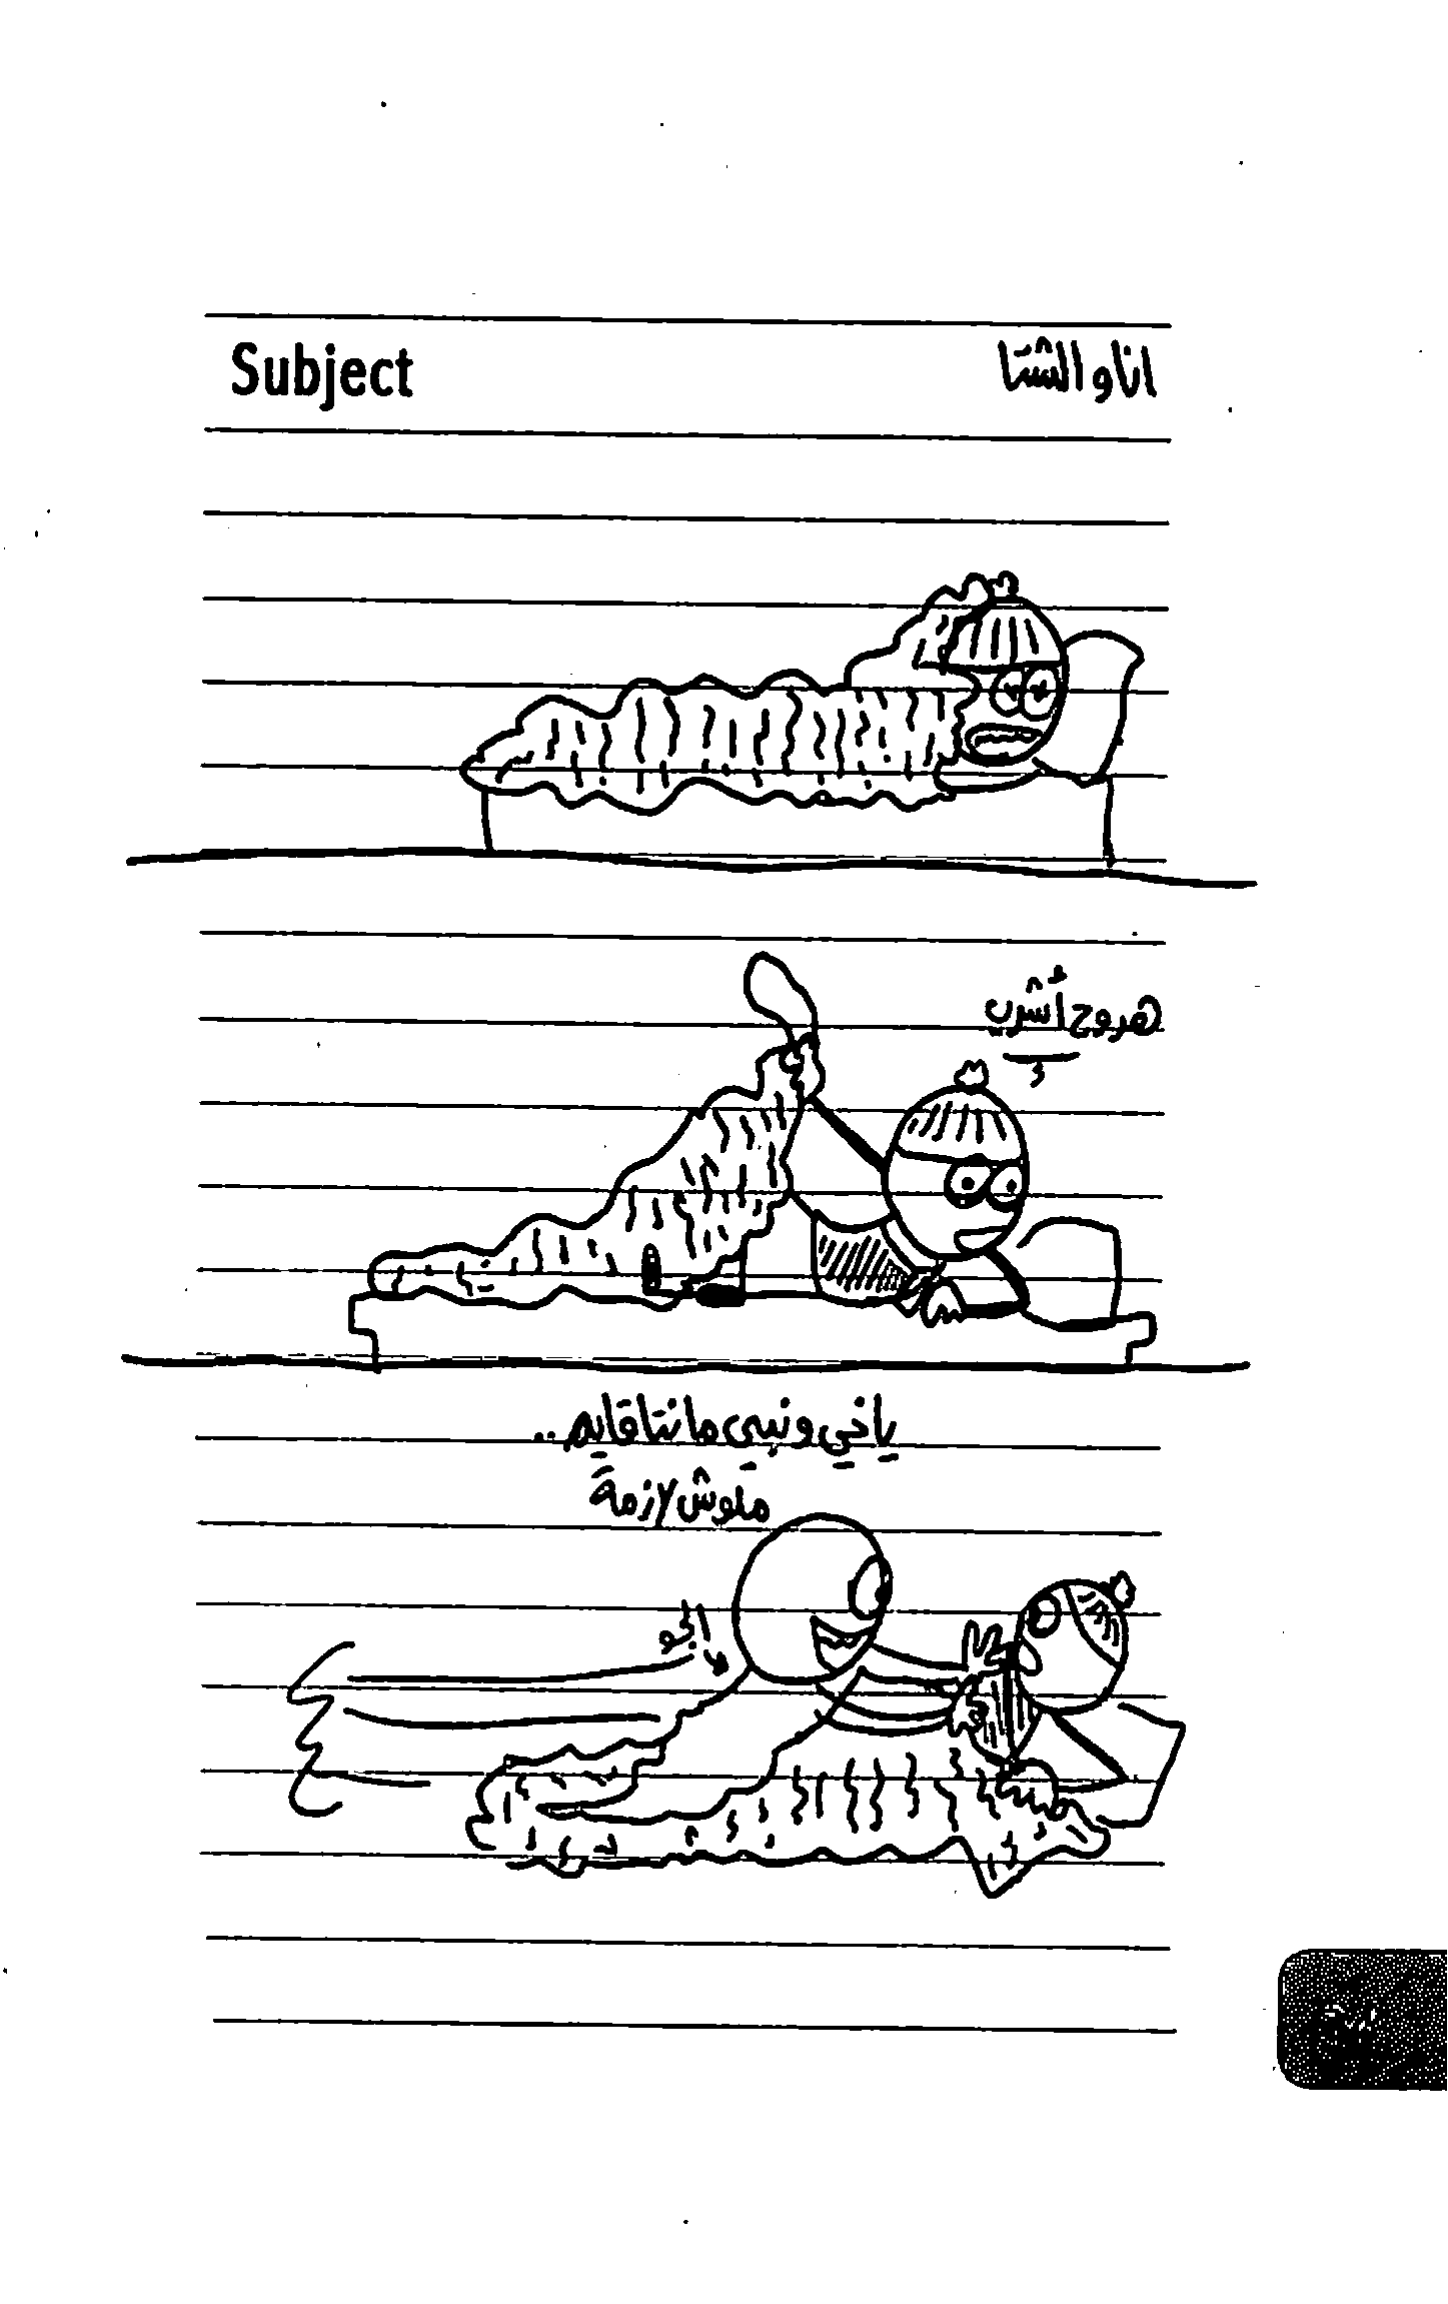 Subject انا و الشتا
هروح أشرب
ياخي ونبي ما نتا قايم..
ملوش لازمة
الجو